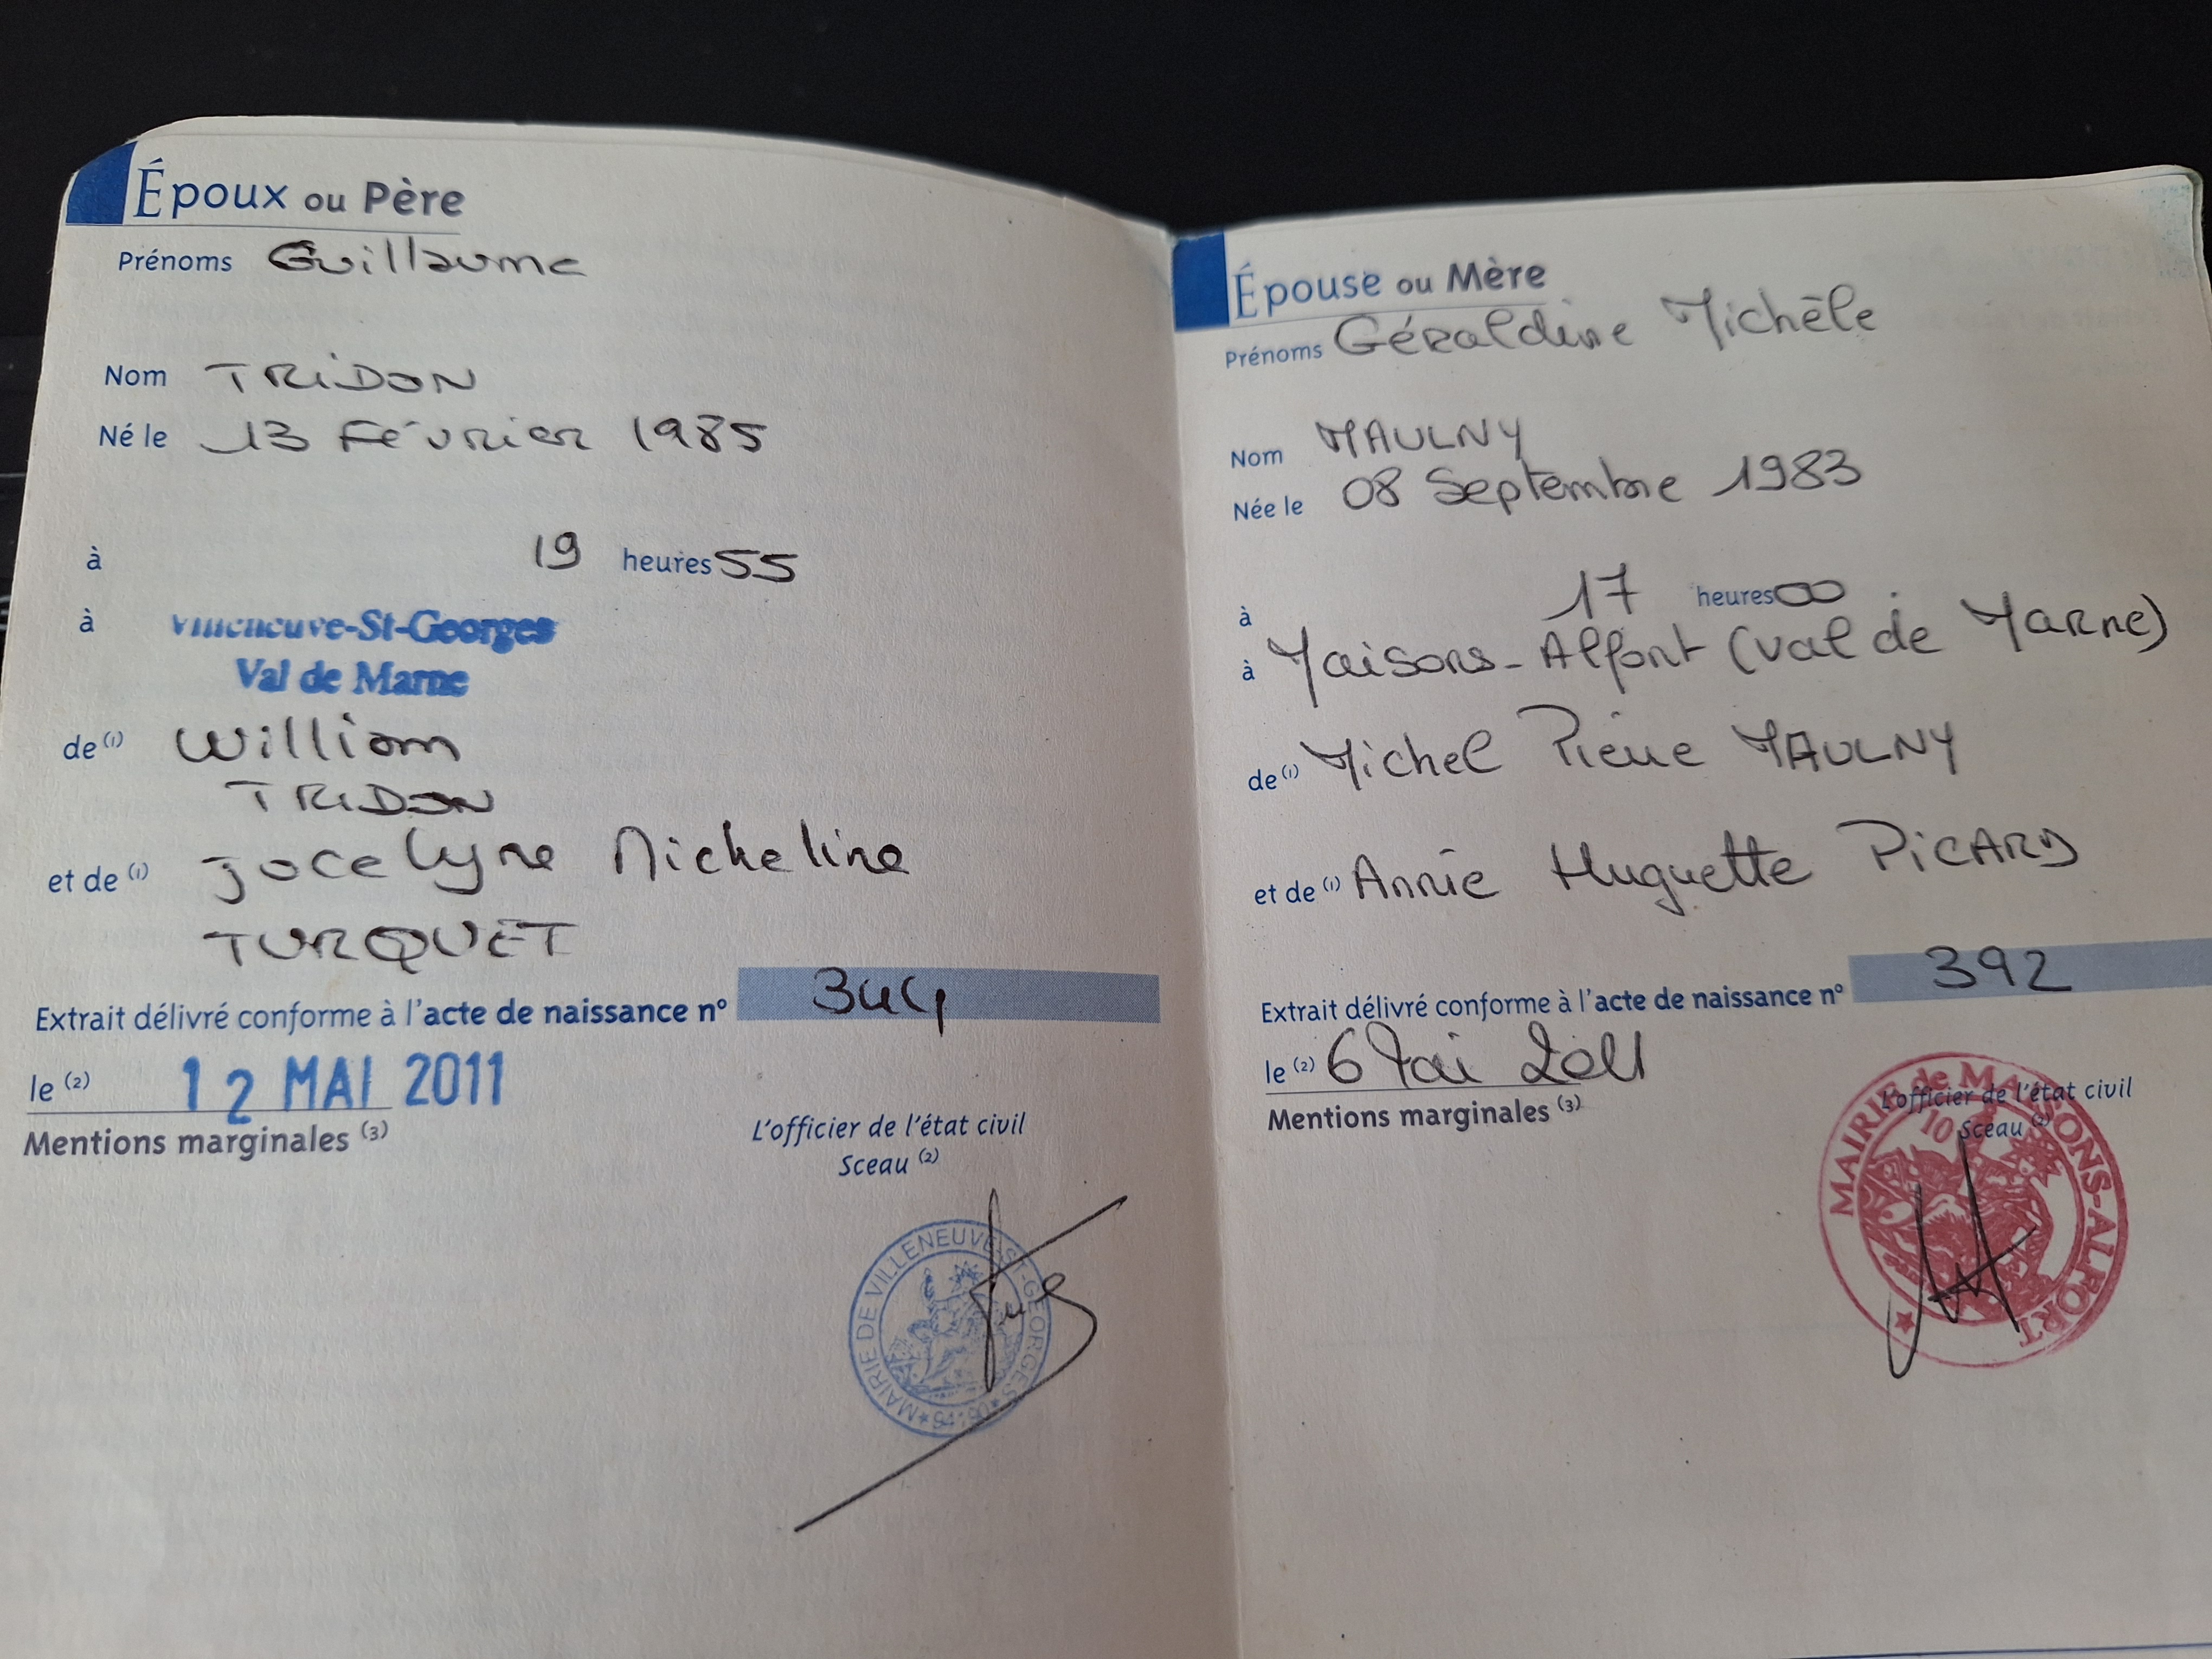 Époux ou Père
Prénoms Guillaume
Nom TRIDON
Né le 13 Février 1985
à 19 heures 55
à Villeneuve-St-Georges
Val de Marne
de (1) William
TRIDON
et de (1) Jocelyne Micheline
TURQUET
Extrait délivré conforme à l'acte de naissance n° 344
le (2) 12 MAI 2011
Mentions marginales (3)
L'officier de l'état civil
Sceau (2)
MAIRIE DE VILLENEUVE-ST-GEORGES
Épouse ou Mère
Prénoms Géraldine Michèle
Nom MAULNY
Née le 08 Septembre 1983
à 17 heures 00
à Maisons-Alfort (Val de Marne)
de (1) Michel Pierre MAULNY
et de (1) Annie Huguette PICARD
Extrait délivré conforme à l'acte de naissance n° 392
le (2) 6 Mai 2011
Mentions marginales (3)
L'officier de l'état civil
Sceau (2)
MAIRIE de MAISONS-ALFORT
10